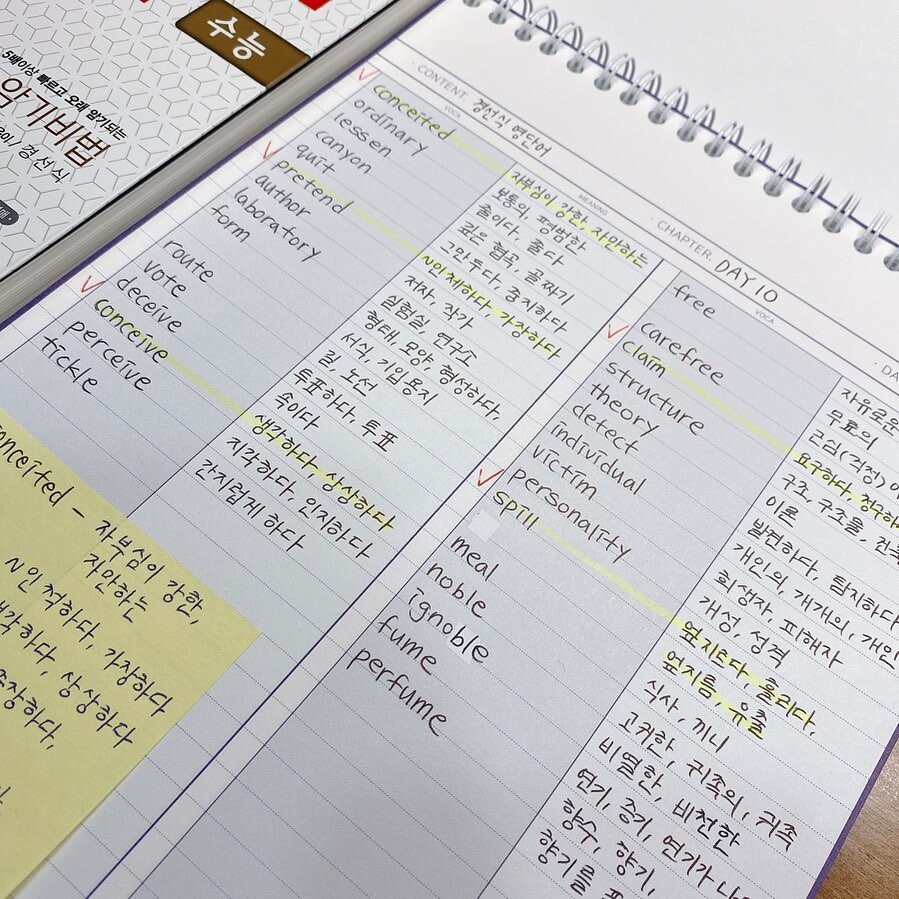 수능
5배이상 빠르고 오래 암기되는
암기비법
경선식
CONTENT. 경선식 영단어
CHAPTER. DAY 10
VOCA
MEANING
conceited
ordinary
lessen
canyon
quit
pretend
author
laboratory
form
route
vote
deceive
conceive
perceive
tickle
자부심이 강한, 자만하는
보통의, 평범한
줄이다, 줄다
깊은 협곡, 골짜기
그만두다, 중지하다
~인체하다, 가장하다
저자, 작가
실험실, 연구소
형태, 모양, 형성하다,
서식, 기입용지
길, 노선
투표하다, 투표
속이다
생각하다, 상상하다
지각하다, 인지하다
간지럽게 하다
VOCA
free
carefree
claim
structure
theory
detect
individual
victim
personality
spill
meal
noble
ignoble
fume
perfume
자유로운
무료의
근심(걱정)
요구하다, 청구하
구조, 구조물, 건축
이론
발견하다, 탐지하다
개인의, 개개의, 개인
희생자, 피해자
개성, 성격
엎지르다, 흘리다,
엎지름, 유출
식사, 끼니
고귀한, 귀족의, 귀족
비열한, 비천한
연기, 증기, 연기가
향수, 향기,
향기를
conceited - 자부심이 강한,
자만하는
~인 척하다, 가장하다
생각하다, 상상하다
주장하다,